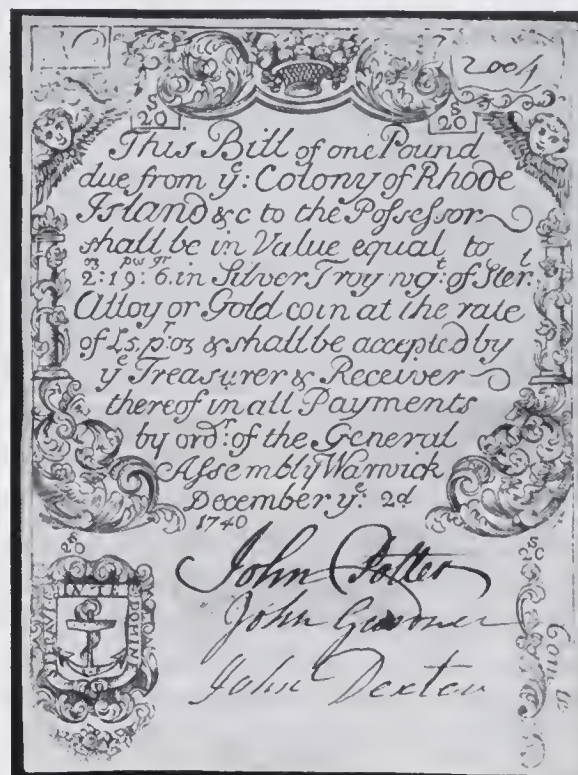 2004
S 20 S 20
This Bill of one Pound
due from yᵉ: Colony of Rhode
Island & c to the Poſseſsor
shall be in Value equal to
oz pwᵗ gr
2:19:6. in Silver Troy wgᵗ: of Sterˡ.
Alloy or Gold coin at the rate
of Ls. pʳ: oz & shall be accepted by
yᵉ Treasurer & Receiver
thereof in all Payments
by ordʳ: of the General
Aſsembly Warwick
December yᵉ: 2d
1740
S 20 S 20
John Potter
John Gardner
John Dexter
IN TE DOMINE